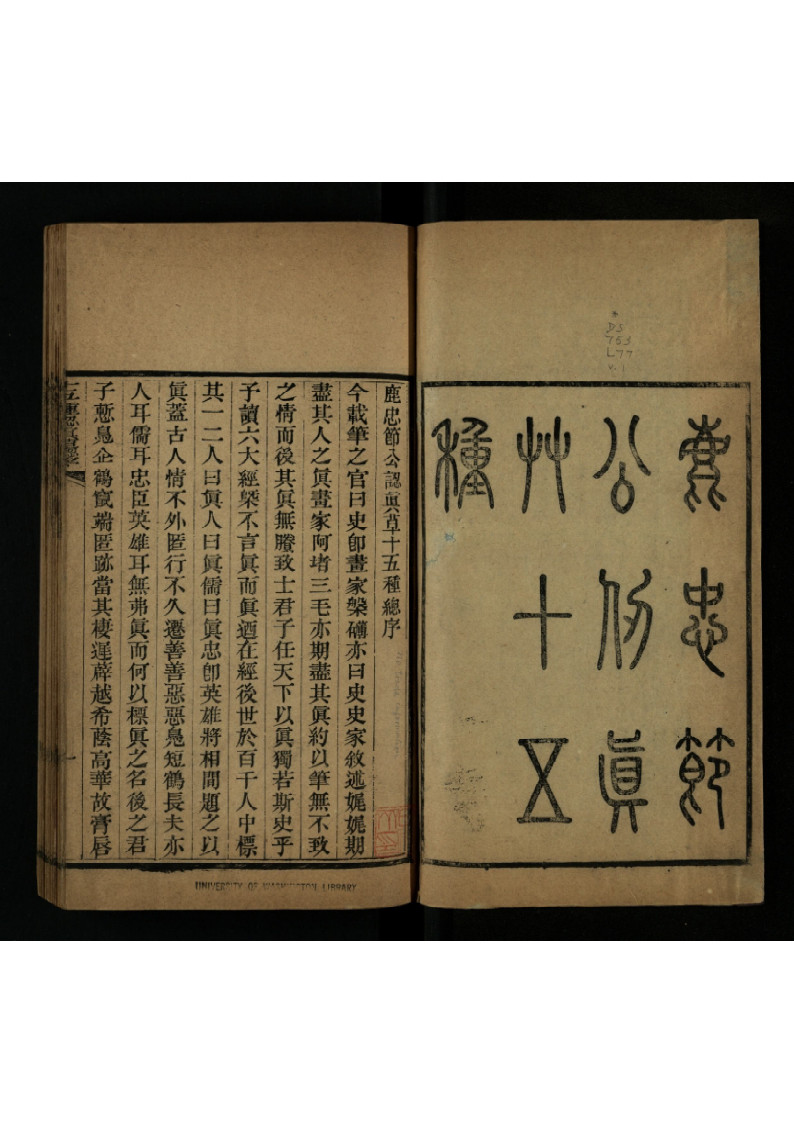 鹿忠節
公認眞
艸十五
種
*
D3
753
L77
v.1
鹿忠節公認眞草十五種總序
今載筆之官曰史卽畫家槃礴亦曰史史家敘述娓娓期
盡其人之眞畫家阿堵三毛亦期盡其眞約以筆無不致
之情而後其眞無賸致士君子任天下以眞獨若斯史乎
子讀六大經槩不言眞而眞迺在經後世於百千人中標
其一二人曰眞人曰眞儒曰眞忠卽英雄將相間題之以
眞蓋古人情不外匿行不久遷善善惡惡鳧短鶴長夫亦
人耳儒耳忠臣英雄耳無弗眞而何以標眞之名後之君
子慙鳧企鶴竄端匿跡當其棲遲薜越希蔭高華故膏唇
一
UNIVERSITY OF WASHINGTON LIBRARY